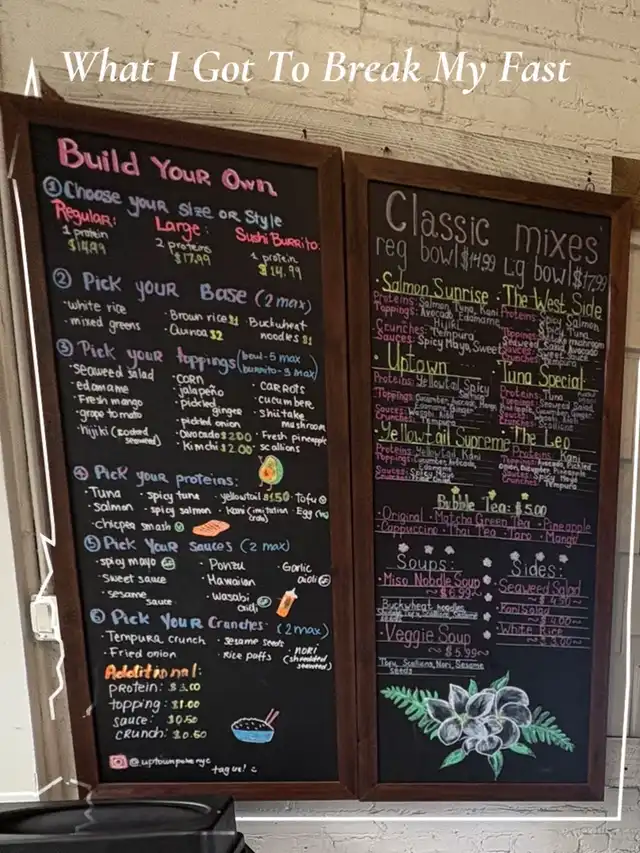 What I Got To Break My Fast
Build Your Own
1 Choose your size or style
Regular: Large: Sushi Burrito:
1 protein 2 proteins 1 protein
$14.99 $17.99 $14.99
2 Pick your Base (2 max)
·white rice ·Brown rice $1 ·Buckwheat noodles $1
·mixed greens ·Quinoa $2
3 Pick your toppings (bowl-5 max
burrito-3 max)
·seaweed salad ·corn ·carrots
·edamame ·jalapeño ·cucumber
·Fresh mango ·pickled ginger ·shiitake mushroom
·grape tomato ·pickled onion
·hijiki (cooked seaweed) ·Avocado $2.00 ·Fresh pineapple
·Kimchi $2.00 ·scallions
4 Pick your proteins:
·Tuna ·spicy tuna ·yellowtail $1.50 ·Tofu
·salmon ·spicy salmon ·Kani (imitation crab) ·Egg
·chicpea smash
5 Pick Your Sauces (2 max)
·spicy mayo ·Ponzu ·Garlic aioli
·sweet sauce ·Hawaiian
·sesame sauce ·wasabi aioli
6 Pick Your Crunches (2 max)
·Tempura crunch ·sesame seeds ·NORI (shredded seaweed)
·Fried onion ·Rice puffs
Additional:
protein: $3.00
topping: $1.00
sauce: $0.50
crunch: $0.50
@uptownpokenyc
tag us! :)
Classic mixes
reg bowl $14.99 Lg bowl $17.99
·Salmon Sunrise
Proteins: Salmon, Tuna, Kani
Toppings: Avocado, Edamame, Hijiki
Crunches: Tempura
Sauces: Spicy Mayo, Sweet
·The West Side
Proteins: Spicy Salmon
Spicy Tuna
·Uptown
Proteins: Yellowtail, Spicy
Crunches: Tempura
Tuna Special
Proteins: Tuna
·Yellowtail Supreme
Proteins: Yellowtail, Kani
Toppings: Cucumber, Avocado, Edamame
Sauces: Spicy Mayo
Crunches: Tempura
The Leo
Proteins: Kani
Toppings: Avocado, Pickled onion, Cucumber, Pineapple
Sauces: Spicy Mayo
Crunches: Tempura
Bubble Tea: $5.00
·Original ·Matcha Green Tea ·Pineapple
·Cappuccino ·Thai Tea ·Taro ·Mango
Soups:
·Miso Noodle Soup
~$6.99~
Buckwheat noodles
·Veggie Soup
~$5.99~
Tofu, Scallions, Nori, Sesame seeds
Sides:
·Seaweed Salad
·Kani Salad
~$4.00~
·White Rice
~$3.00~